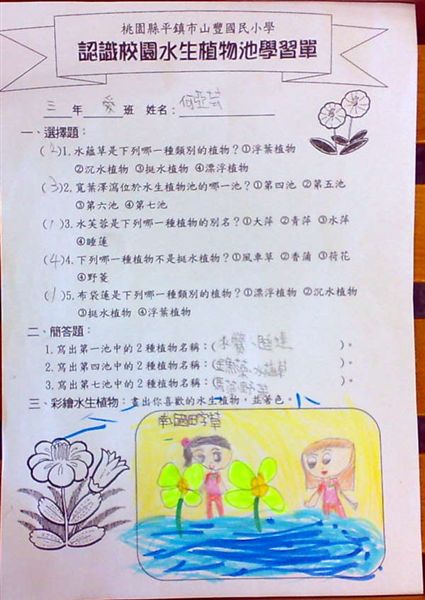 桃園縣平鎮市山豐國民小學
認識校園水生植物池學習單
三 年 愛 班 姓名：何亞芸
一、選擇題：
(2)1. 水蘊草是下列哪一種類別的植物？①浮葉植物
②沉水植物 ③挺水植物 ④漂浮植物
(3)2. 寬葉澤瀉位於水生植物池的哪一池？①第四池 ②第五池
③第六池 ④第七池
(1)3. 水芙蓉是下列哪一種植物的別名？①大萍 ②青萍 ③水萍
④睡蓮
(4)4. 下列哪一種植物不是挺水植物？①風車草 ②香蒲 ③荷花
④野菱
(1)5. 布袋蓮是下列哪一種類別的植物？①漂浮植物 ②沉水植物
③挺水植物 ④浮葉植物
二、簡答題：
1. 寫出第一池中的2種植物名稱：(水蠟、睡蓮)。
2. 寫出第四池中的2種植物名稱：(水蘊草)。
3. 寫出第七池中的2種植物名稱：( )。
三、彩繪水生植物：畫出你喜歡的水生植物，並著色。
南國田字草